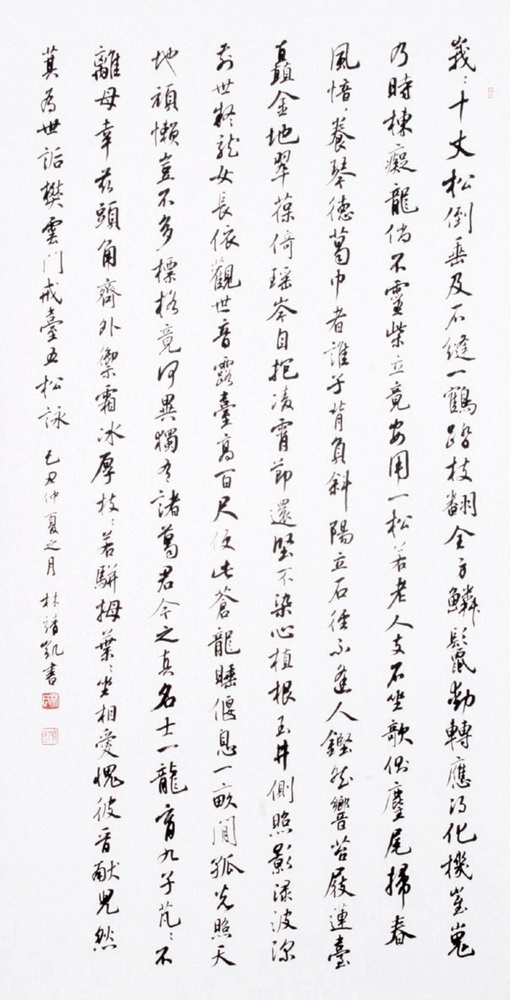 峩〻十丈松倒垂及石縫一鶴踏枝翻全身鱗鬣動轉應得化機嵬
乃時棟癡龍倘不靈柴立竟安用一松若老人支石坐歌傲麈尾掃春
風愔〻養琴德葛巾者誰子背負斜陽立石徑不逢人鏗然響苔屐蓮臺
矗金地翠葆倚瑤岑自抱凌霄節還堅不染心植根玉井側照影淥波深
前世癡龍女長依觀世音露臺高百尺使此蒼龍睡偃息一畝間孤光照天
地頑懶豈不多標格竟何異獨有諸葛君今之真名士一龍育九子芃〻不
離母幸茲頭角齊外禦霜冰厚枝〻若駢拇葉〻坐相愛愧彼晉獻兒然
萁為世詬樊雲門戒臺五松詠 己丑仲夏之月 林靖凱書